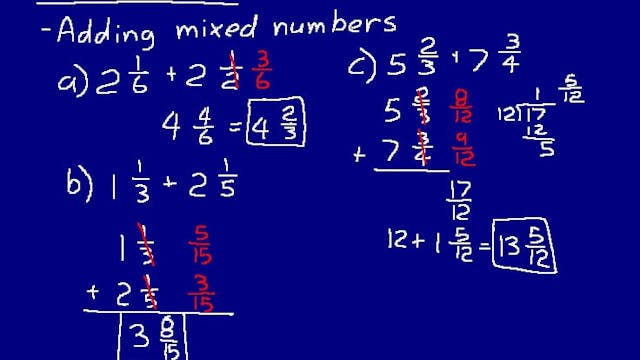 -Adding mixed numbers
a) 2 1/6 + 2 1/2 3/6
4 4/6 = 4 2/3
b) 1 1/3 + 2 1/5
1 1/3 5/15
+ 2 1/5 3/15
3 8/15
c) 5 2/3 + 7 3/4
5 2/3 8/12
+ 7 3/4 9/12
17/12
12 + 1 5/12 = 13 5/12
1 5/12
12)17
12
5